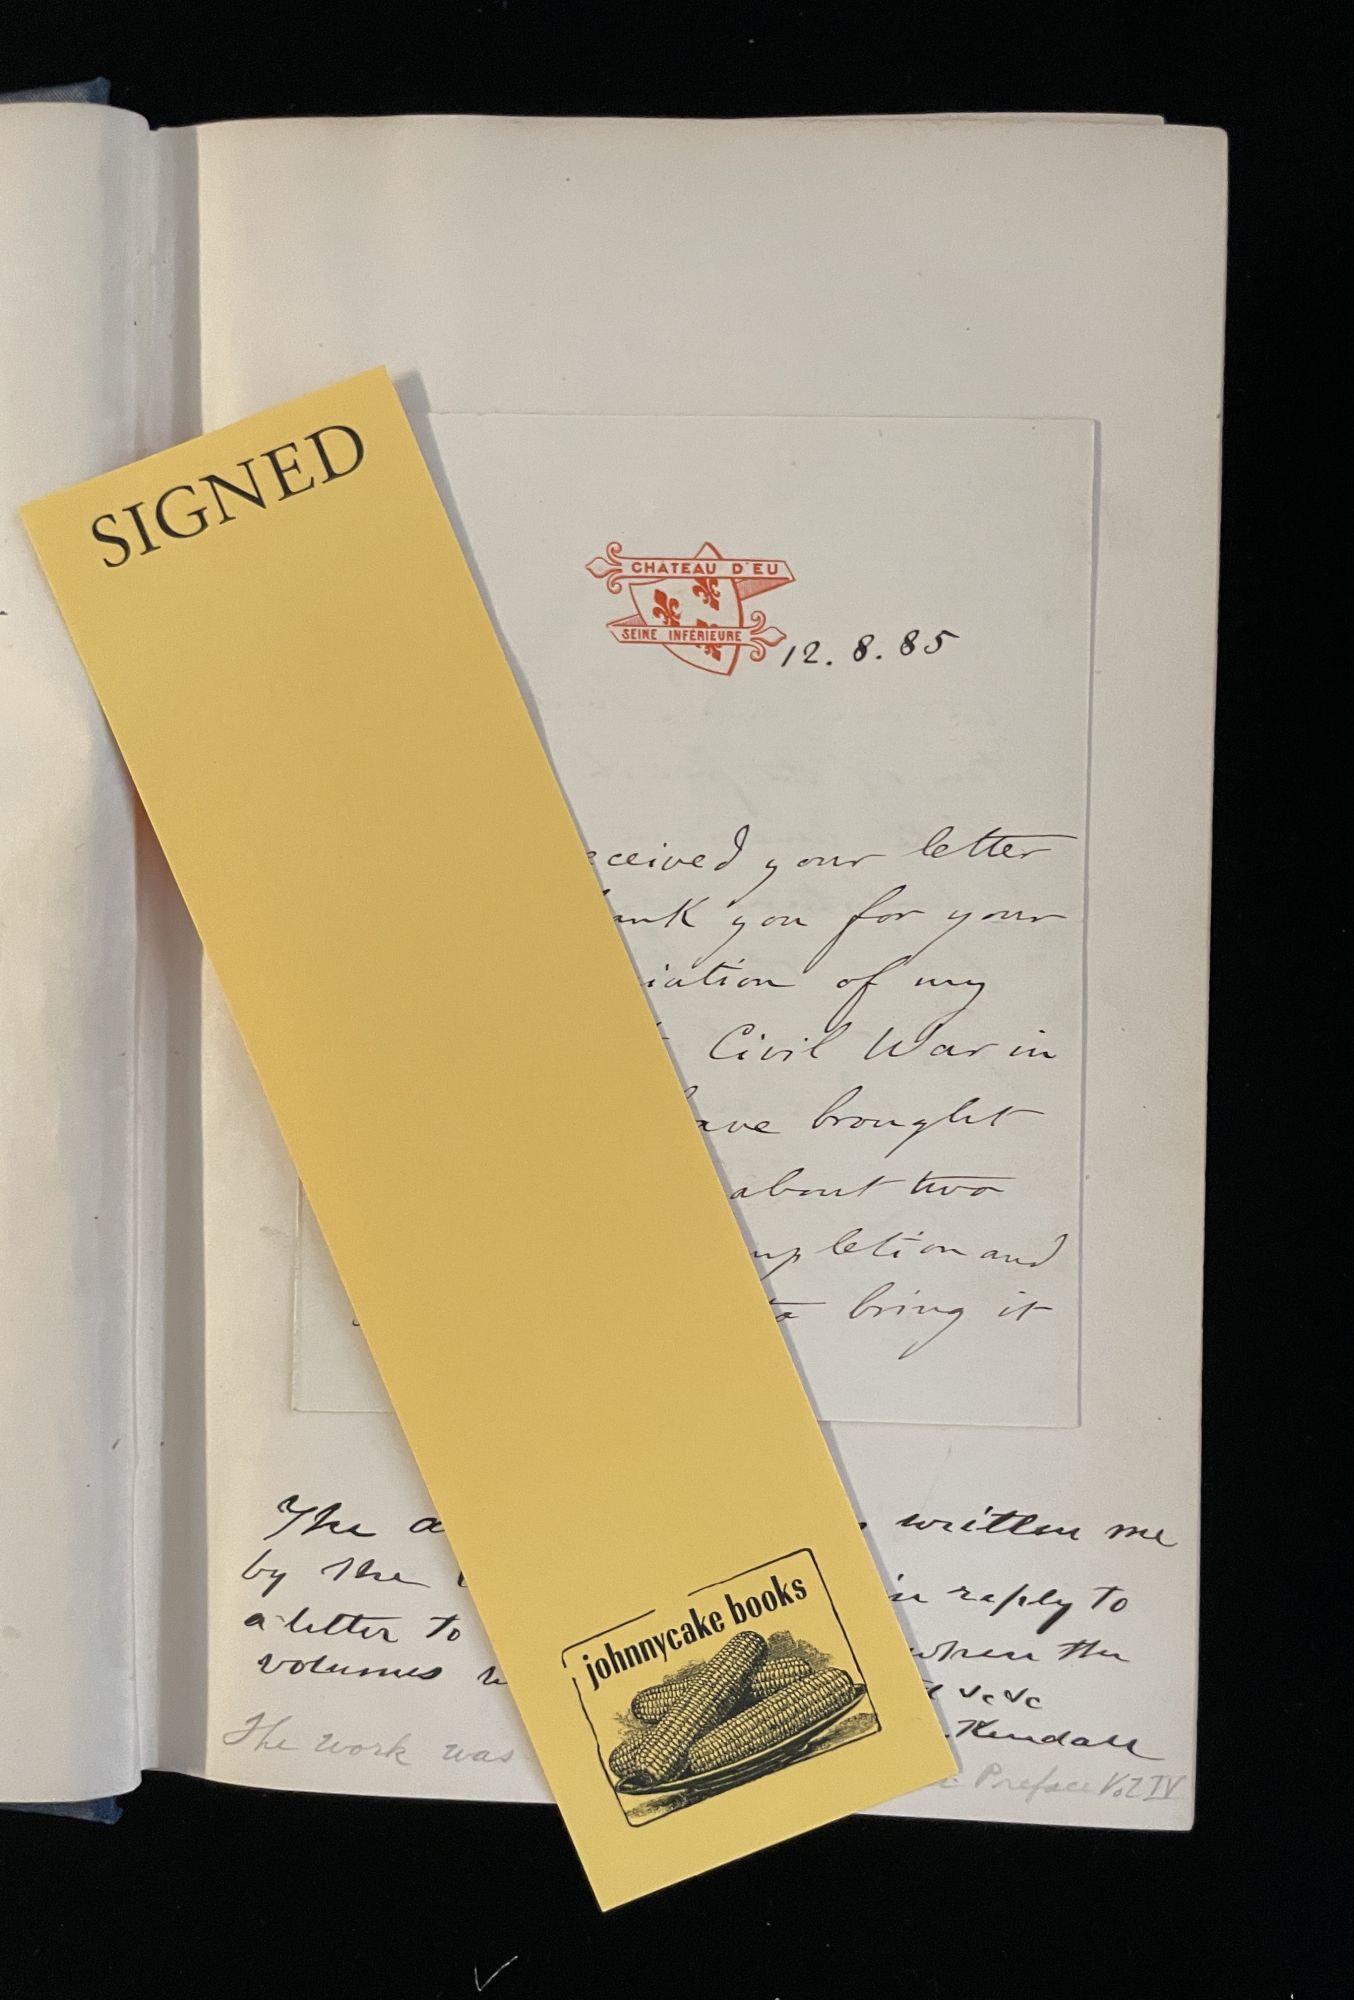 SIGNED
CHATEAU D'EU
SEINE INFÉRIEURE
12.8.85
eceived your letter
ank you for your
iation of my
Civil War in
ave brought
about two
mpletion and
to bring it
The a written me
by the in reply to
a letter to when the
volumes
&c &c
Kendall
The work was Preface Vol IV
johnnycake books